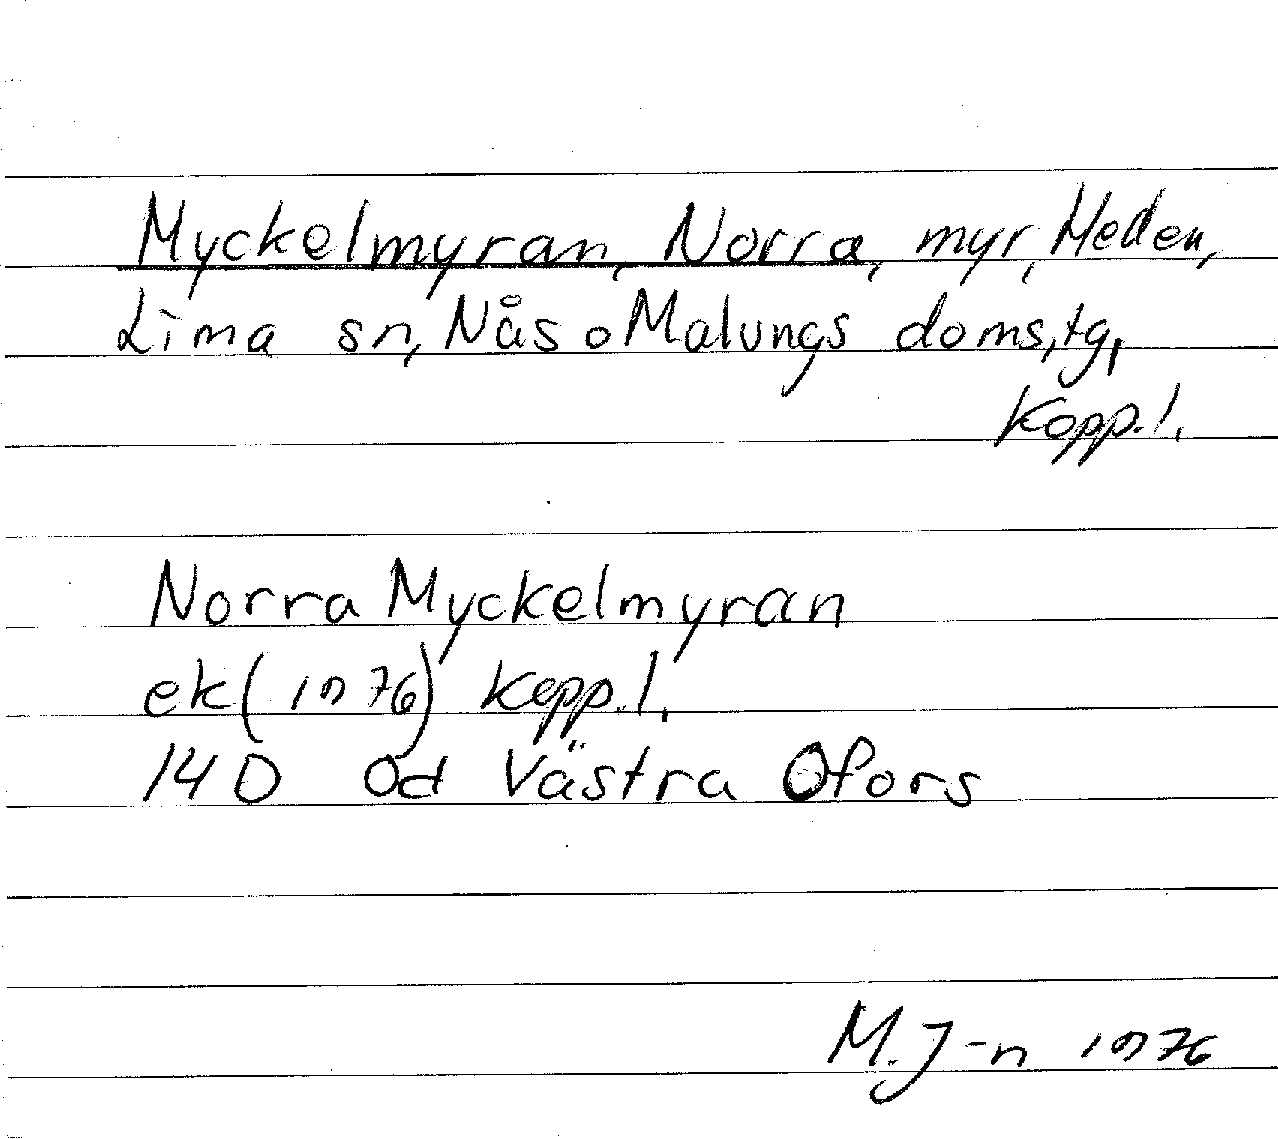 Myckelmyran, Norra, myr, Heden,
Lima sn, Nås o Malungs doms,tg,
Kopp.l.
Norra Myckelmyran
ek(1976) Kopp.l.
14D 0d Västra Ofors
M.J-n 1976